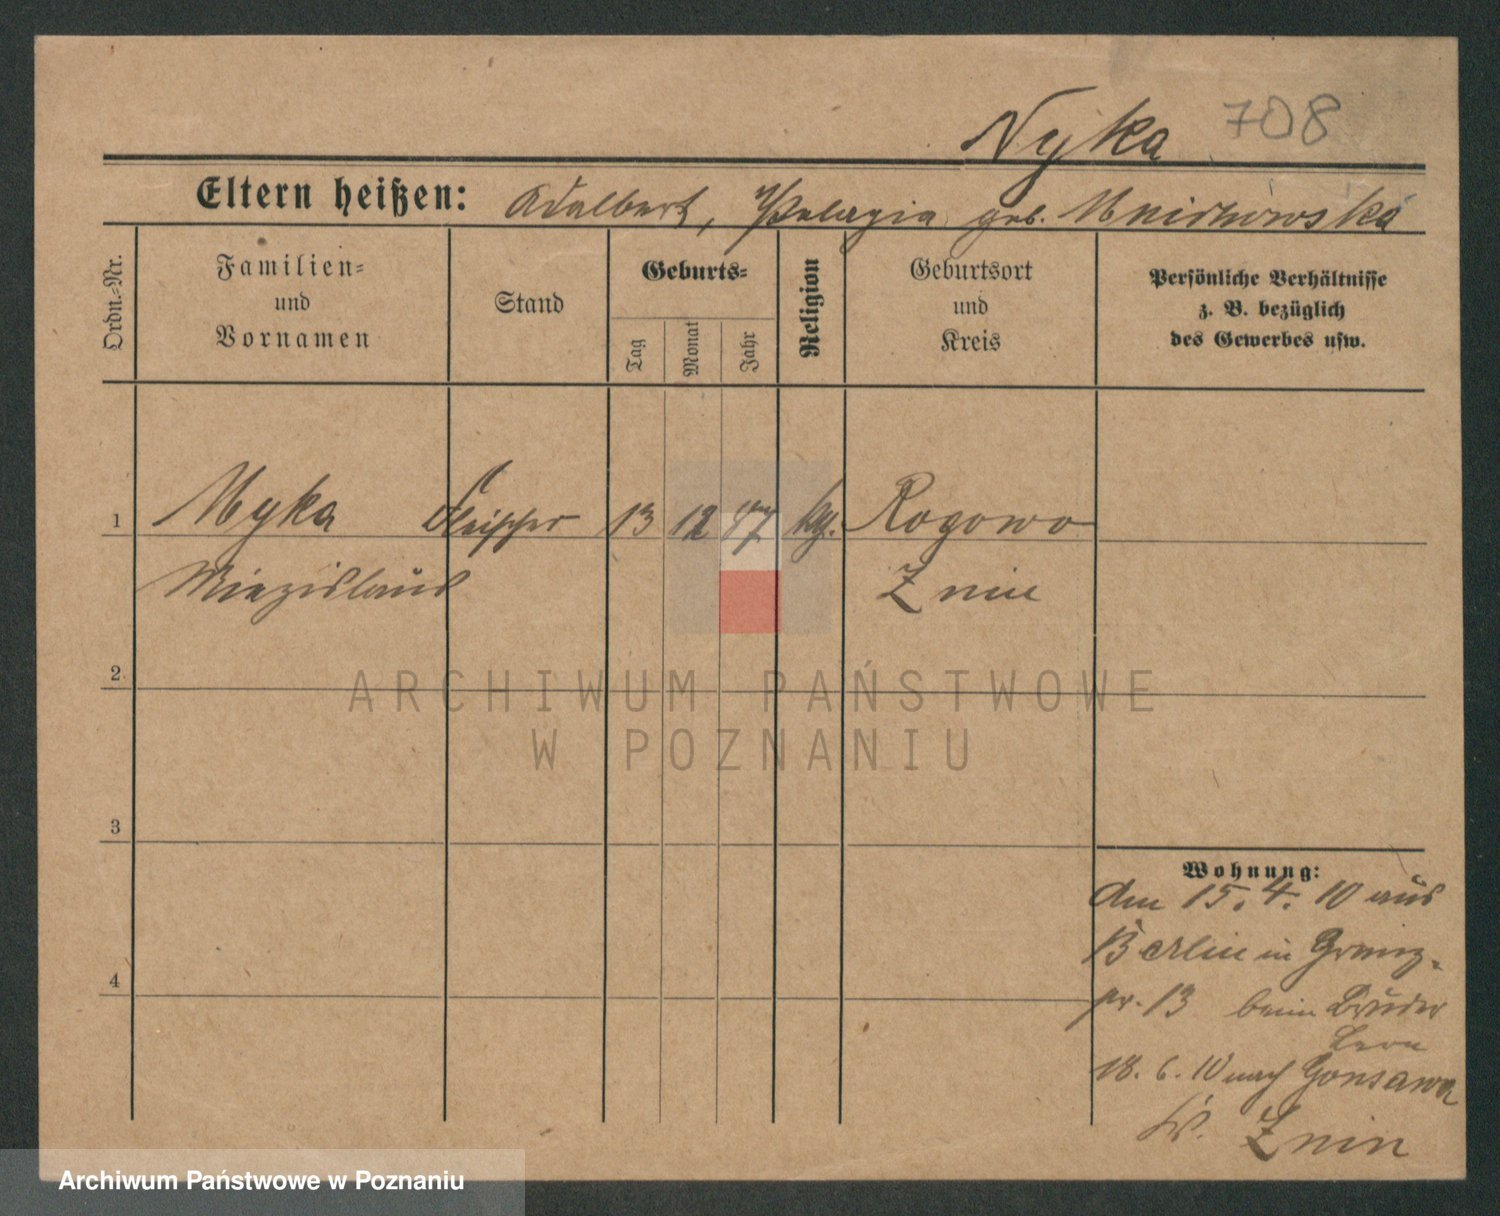 Nyka 708
Eltern heißen: Adalbert, Pelagia geb. Mnichowska
Ordn.-Nr.
Familien-
und
Vornamen
Stand
Geburts-
Tag
Monat
Jahr
Religion
Geburtsort
und
Kreis
Persönliche Verhältnisse
z. B. bezüglich
des Gewerbes usw.
1 Nyka Fleischer 13 12 87 kg. Rogowo
Miezislaus Znin
2
3
4
Wohnung:
Am 15. 4. 10 aus
Berlin in
pr. 13 beim Bruder
18. 6. 10 nach Gonsawa
Kr. Znin
ARCHIWUM PAŃSTWOWE
W POZNANIU
Archiwum Państwowe w Poznaniu